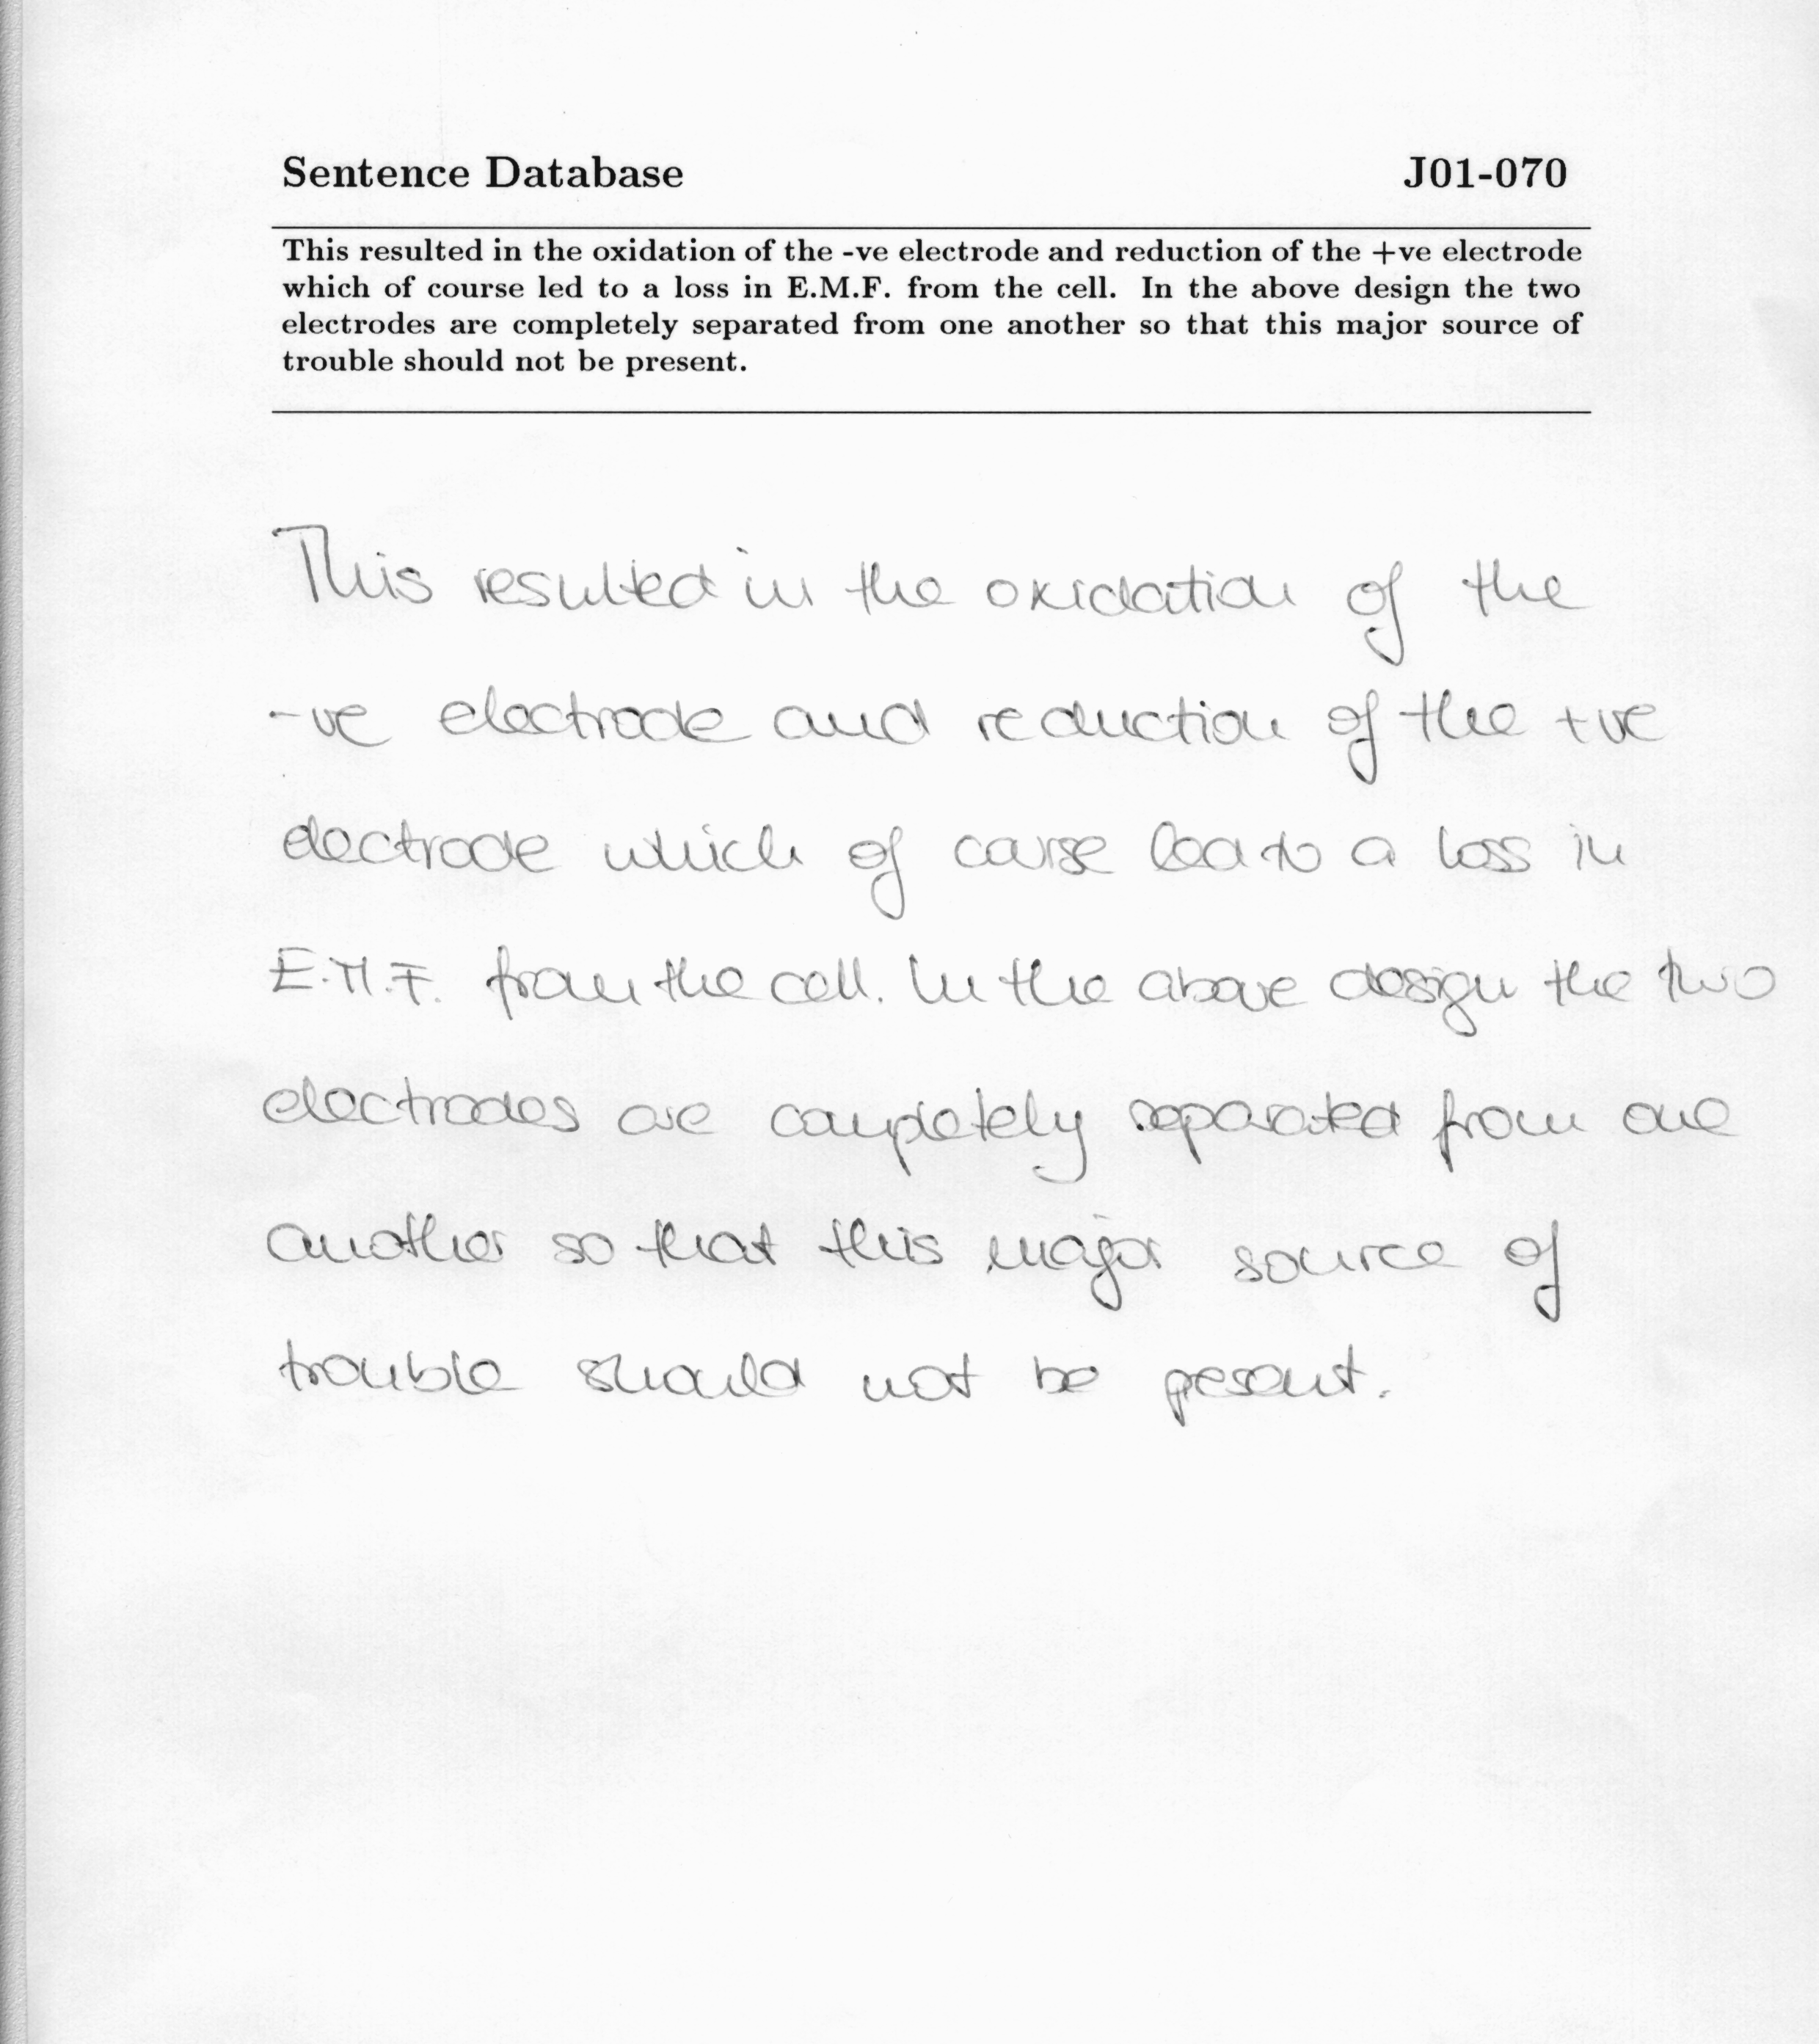 Sentence Database J01-070
This resulted in the oxidation of the -ve electrode and reduction of the +ve electrode
which of course led to a loss in E.M.F. from the cell. In the above design the two
electrodes are completely separated from one another so that this major source of
trouble should not be present.
This resulted in the oxidation of the
-ve electrode and reduction of the +ve
electrode which of course led to a loss in
E.M.F. from the cell. In the above design the two
electrodes are completely separated from one
another so that this major source of
trouble should not be present.